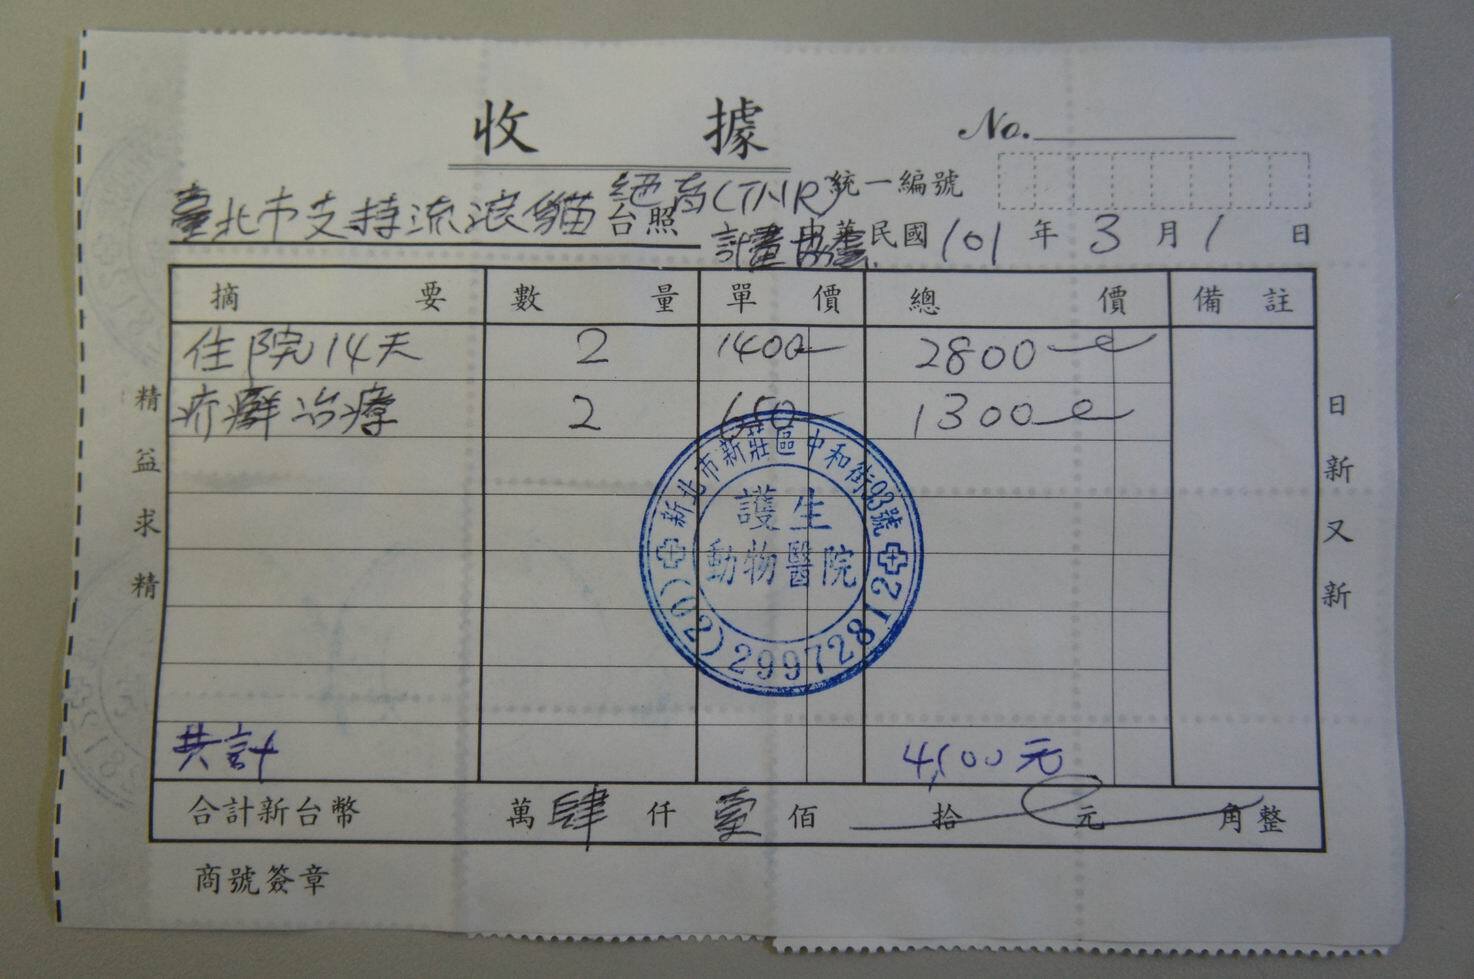 收據
No.
統一編號
臺北市支持流浪貓絕育(TNR)計畫協會
台照
中華民國101年3月1日
摘要 數量 單價 總價 備註
住院14天 2 1400 2800
疥癬治療 2 650 1300
共計 4,100元
合計新台幣 萬肆仟壹佰拾元角整
商號簽章
精益求精
日新又新
新北市新莊區中和街93號
護生
動物醫院
(02)29972812